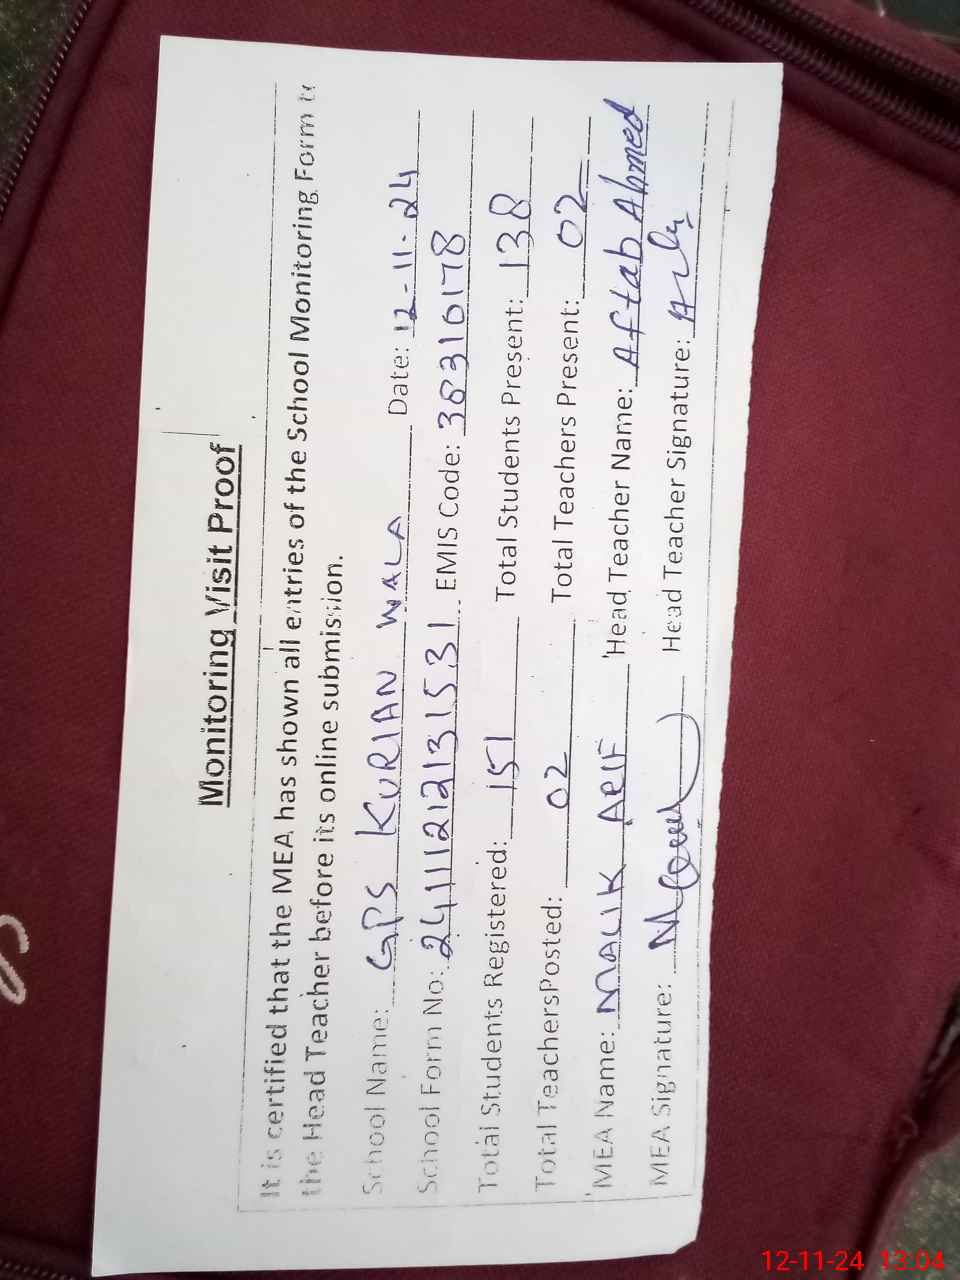 Monitoring Visit Proof
It is certified that the MEA has shown all entries of the School Monitoring Form to
the Head Teacher before its online submission.
School Name: GPS KURIAN WALA Date: 12-11-24
School Form No: 241112131531 EMIS Code: 38310178
Total Students Registered: 151 Total Students Present: 138
Total TeachersPosted: 02 Total Teachers Present: 02
MEA Name: MALIK ARIF Head Teacher Name: Aftab Ahmed
MEA Signature: Head Teacher Signature:
12-11-24 13:04